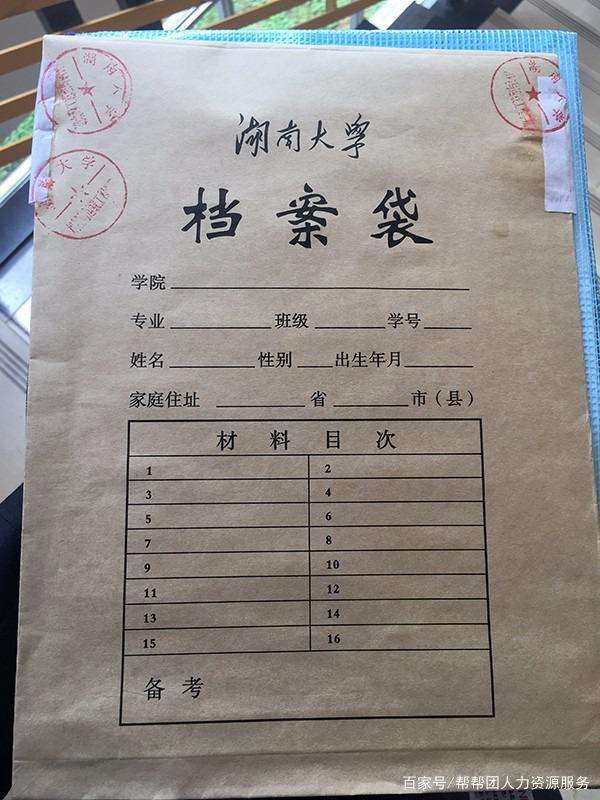 湖南大学
大学
湖南大学
档案袋
学院
专业 班级 学号
姓名 性别 出生年月
家庭住址 省 市（县）
材料目次
1 2
3 4
5 6
7 8
9 10
11 12
13 14
15 16
备考
百家号/帮帮团人力资源服务